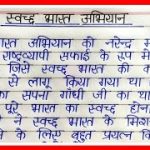 स्वच्छ भारत अभियान
भारत अभियान को नरेन्द्र म
राष्ट्रव्यापी सफाई के रूप में
जिसे स्वच्छ भारत की क
से लागू किया गया था
का सपना गाँधी जी का था
पूरे भारत का स्वच्छ होना
ने स्वच्छ भारत के
के लिए बहुत प्रयत्न कि